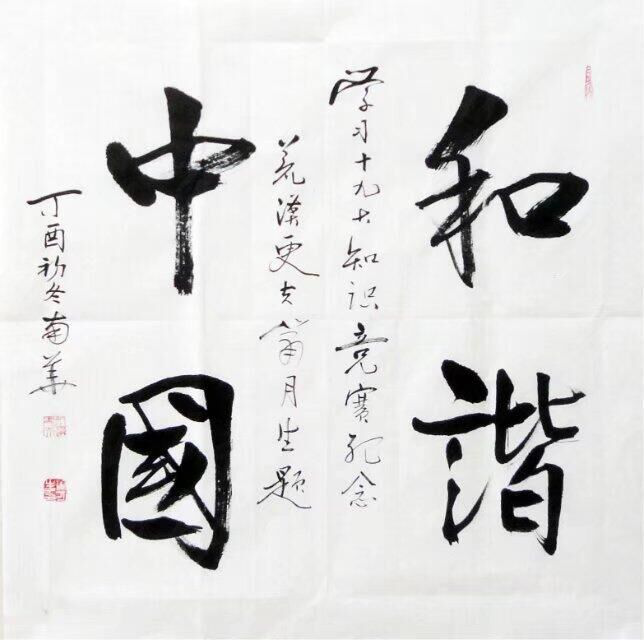 和諧
中國
学习十九大知识竞赛纪念
荒漠更夫 月生题
丁酉初冬南华